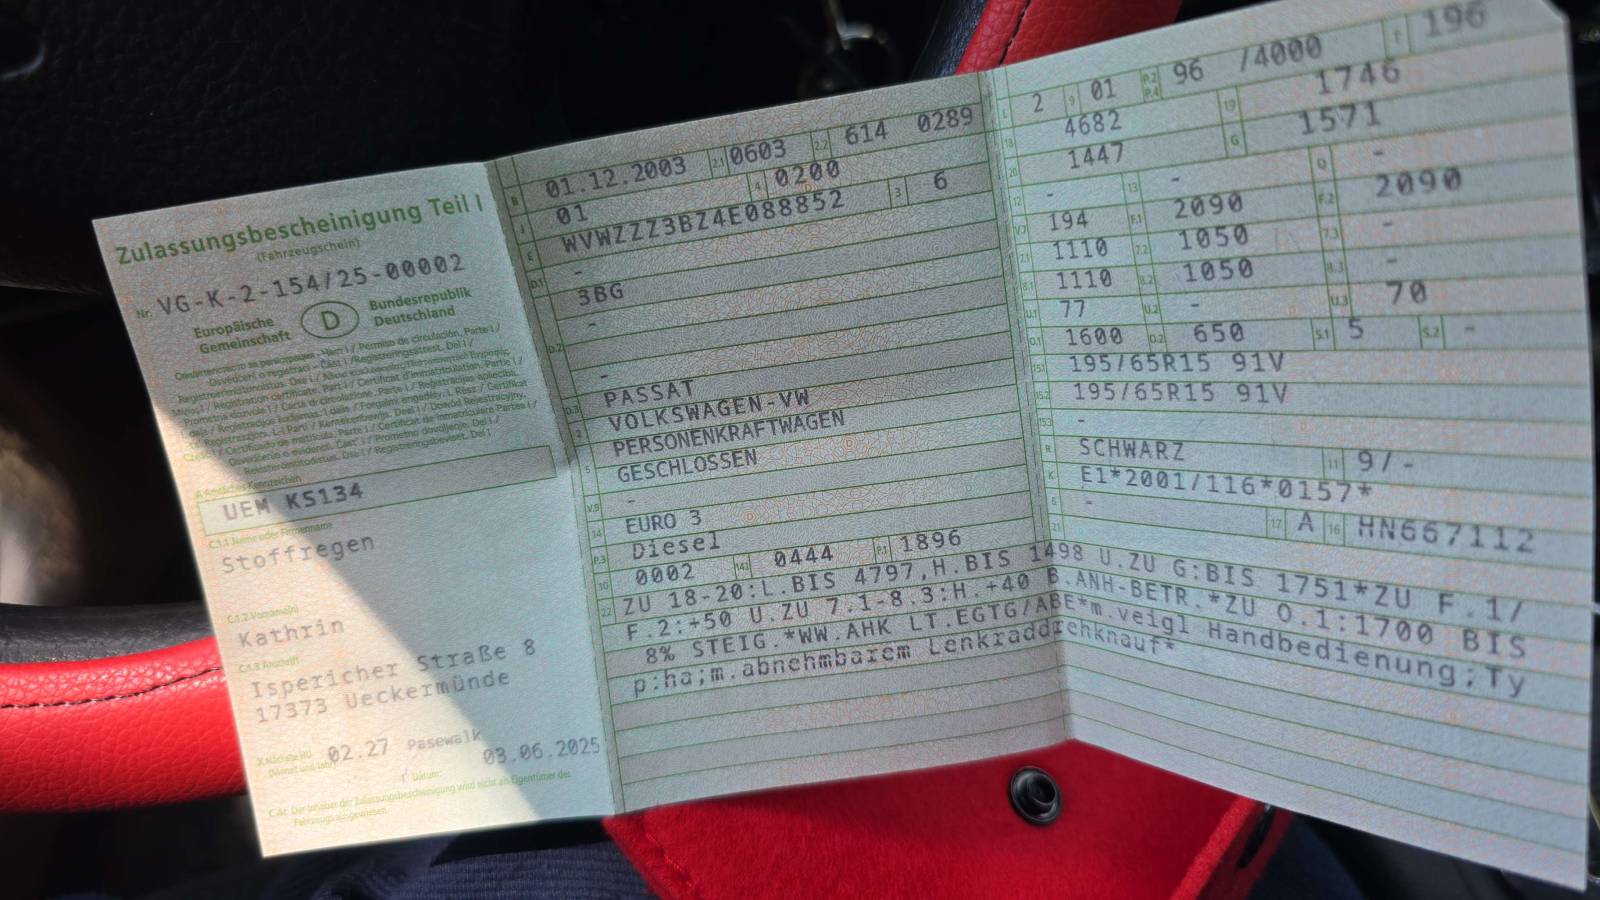 Zulassungsbescheinigung Teil I
(Fahrzeugschein)
Nr. VG-K-2-154/25-00002
Europäische Gemeinschaft D Bundesrepublik Deutschland
A Amtliches Kennzeichen
UEM KS134
C.1.1 Name oder Firmenname
Stoffregen
C.1.2 Vorname(n)
Kathrin
C.1.3 Anschrift
Ispericher Straße 8
17373 Ueckermünde
X Nächste HU (Monat und Jahr) 02.27 Pasewalk
Datum: 03.06.2025
C.4c Der Inhaber der Zulassungsbescheinigung wird nicht als Eigentümer des
Fahrzeugs ausgewiesen.
B 01.12.2003 2.1 0603 2.2 614 0289
J 01 4 0200
E WVWZZZ3BZ4E088852 3 6
D.1 -
3BG
D.2 -
-
D.3 PASSAT
2 VOLKSWAGEN-VW
5 PERSONENKRAFTWAGEN
GESCHLOSSEN
V.9 -
14 EURO 3
P.3 Diesel
10 0002 14.1 0444 P.1 1896
L 2 9 01 P.2 P.4 96 /4000 T 196
18 4682 19 1746
20 1447 G 1571
12 - 13 - Q -
V.7 194 F.1 2090 F.2 2090
7.1 1110 7.2 1050 7.3 -
8.1 1110 8.2 1050 8.3 -
U.1 77 U.2 - U.3 70
O.1 1600 O.2 650 S.1 5 S.2 -
15.1 195/65R15 91V
15.2 195/65R15 91V
15.3 -
R SCHWARZ 11 9/-
K E1*2001/116*0157*
6 - 17 A 16 HN667112
21
22 ZU 18-20:L.BIS 4797,H.BIS 1498 U.ZU G:BIS 1751*ZU F.1/
F.2:+50 U.ZU 7.1-8.3:H.+40 B.ANH-BETR.*ZU O.1:1700 BIS
8% STEIG.*WW.AHK LT.EGTG/ABE*m.veigl Handbedienung;Ty
p:ha;m.abnehmbarem Lenkraddrehknauf*